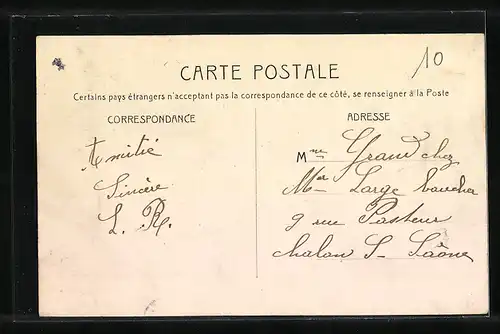 10
CARTE POSTALE
Certains pays étrangers n'acceptant pas la correspondance de ce côté, se renseigner à la Poste
CORRESPONDANCE
Amitié
Sincère
L. R.
ADRESSE
Mme Grand chez
Mr Large boucher
9 rue Pasteur
Chalon S- Saône